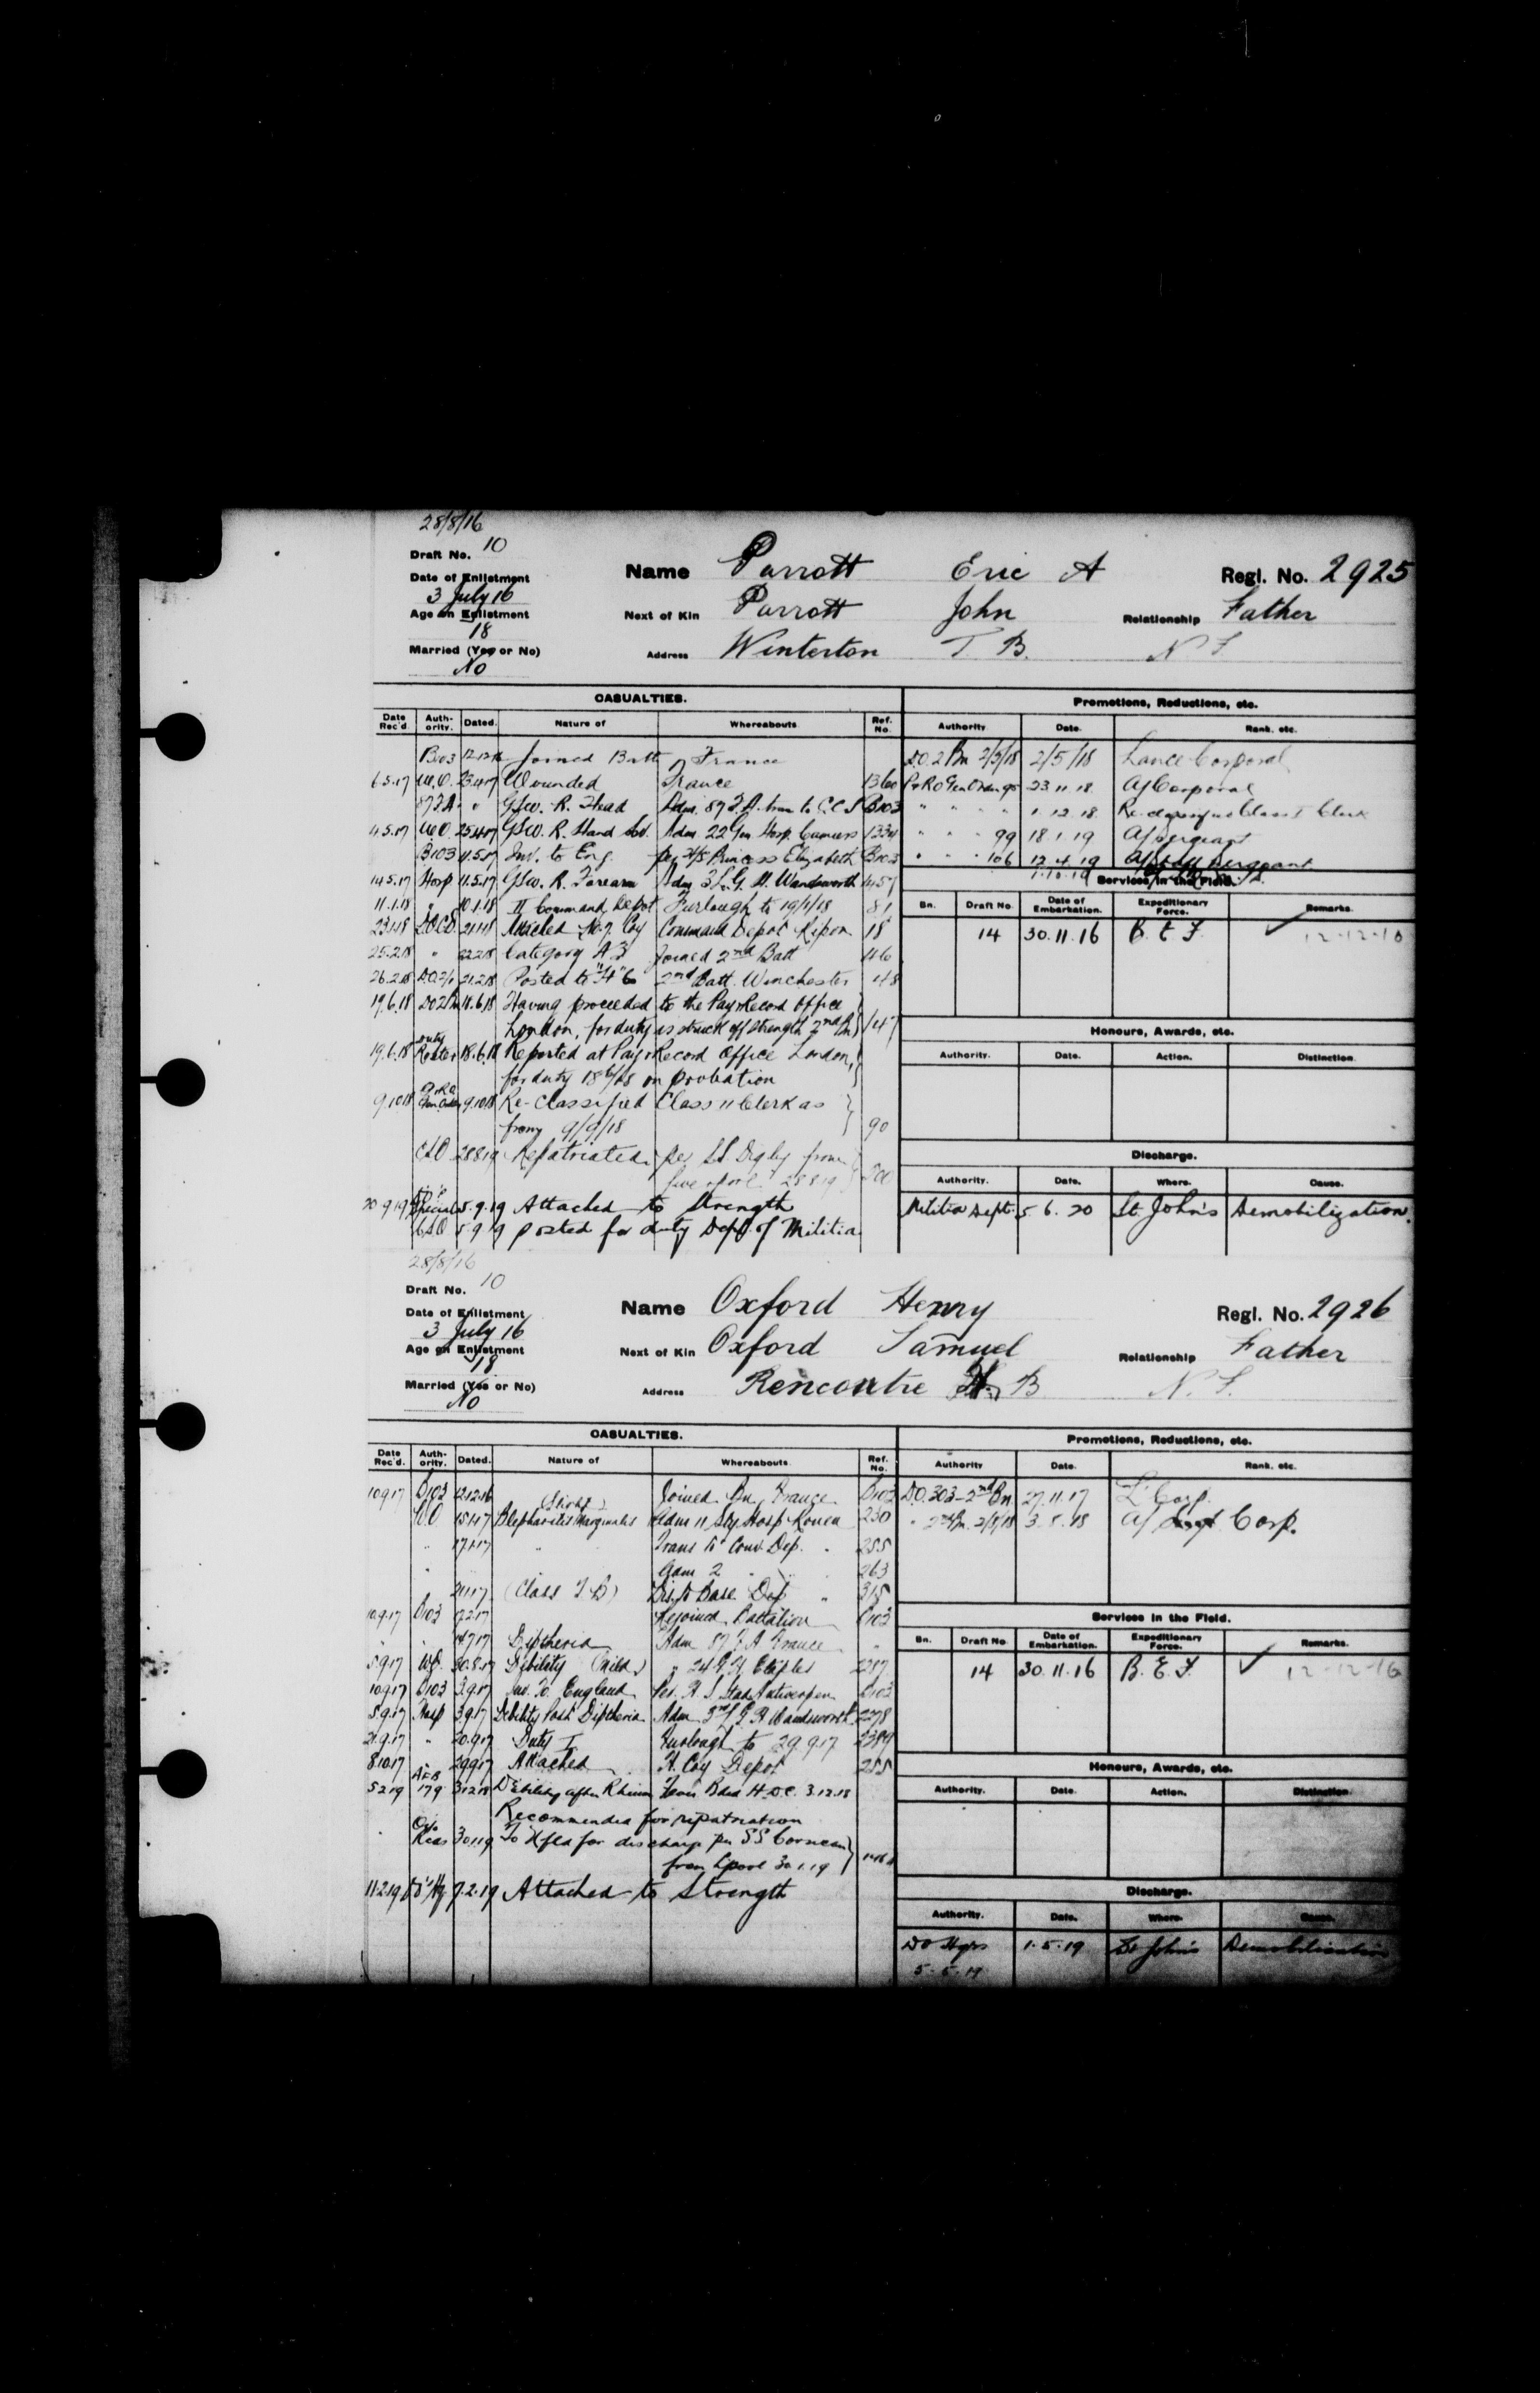 28/8/16
Draft No. 10
Name Parrott Eric A Regl. No. 2925
Date of Enlistment
3 July 16
Next of Kin Parrott John Relationship Father
Age on Enlistment
18
Address Winterton T. B. N F
Married (Yes or No)
No
CASUALTIES. Promotions, Reductions, etc.
Date Rec'd. Authority. Dated. Nature of Whereabouts Ref. No. Authority Date. Rank, etc.
B103 12.12.16 Joined Batt France D.O. 2 Bn 2/5/18 2/5/18 Lance Corporal
6.5.17 W.O. 23.4.17 Wounded France 1360 23.11.18 A/Corporal
87 F.A. " GSW. R. Head Adm. 87 F.A. tran to C.C.S B103 " " " 1.12.18
4.5.17 W.O. 25.4.17 GSW. R. Hand Adm 22 Gen Hosp. Camiers 1334 " " " 99 18.1.19 A/Sergeant
B103 11.5.17 Inv. to Eng. per H/S Princess Elizabeth B103 " " " 106 12.4.19 Sergeant
14.5.17 Hosp 11.5.17 GSW. R. Forearm Adm 3 L.G. H. Wandsworth 1.10.19
Services in the Field.
11.1.18 " 10.1.18 II Command Depot Furlough to 19/1/18 81 Bn. Draft No. Date of Embarkation. Expeditionary Force. Remarks.
23.1.18 21.1.18 Attached Coy Command Depot Ripon 18 14 30.11.16 B. E. F. ✓ 12-12-16
25.2.18 " 22.2.18 Category A 3 Joined 2nd Batt 46
26.2.18 21.2.18 Posted to "H" Co 2nd Batt. Winchester 48
19.6.18 18.6.18 Having proceeded to the Pay & Record Office
London, for duty is struck off strength 2nd Bn 147
Honours, Awards, etc.
19.6.18 18.6.18 Reported at Pay & Record Office London, Authority. Date. Action. Distinction.
for duty 18/6/18 on probation
9.10.18 9.10.18 Re-Classified Class II Clerk as
from 9/9/18 90
28.8.19 Repatriated per SS Digby from Discharge.
Liverpool 28.8.19 Authority. Date. Where. Cause.
20.9.19 Special 5.9.19 Attached to Strength Militia Dept. 5.6.20 St. John's Demobilization.
5.9.19 posted for duty Dept. of Militia
28/8/16
Draft No. 10
Name Oxford Henry Regl. No. 2926
Date of Enlistment
3 July 16
Next of Kin Oxford Samuel Relationship Father
Age on Enlistment
18
Address Rencontre B N. F.
Married (Yes or No)
No
CASUALTIES. Promotions, Reductions, etc.
Date Rec'd. Authority. Dated. Nature of Whereabouts Ref. No. Authority Date. Rank, etc.
10.9.17 B103 12.12.16 Joined Bn, France B103 D.O. 303-2nd Bn 27.11.17 L' Corp.
W.O. 15.1.17 Blepharitis Marginalis Adm 11 Sty Hosp Rouen 230 " 2nd Bn. 2/8/18 3.8.18 A/ Corp.
" 17.1.17 " Trans to Conv. Dep. " 255
" Adm 2 " " 263
21.1.17 (Class T B) Dis. to Base Dep " 315
10.9.17 B103 17.2.17 Rejoined Battalion B103 Services in the Field.
" " 14.7.17 Diptheria Adm 87 F.A France " Bn. Draft No. Date of Embarkation. Expeditionary Force. Remarks.
5.9.17 W.O. 30.8.17 Debility (Mild) " 24 G.H. Etaples 2287 14 30.11.16 B. E. F. ✓ 12-12-16
10.9.17 B103 3.9.17 Inv. To England Per. H.S. Stad Antwerpen B103
5.9.17 Hosp 3.9.17 Debility Post Diptheria Adm 3rd L G H Wandsworth 2278
21.9.17 " 20.9.17 Duty I Furlough to 29.9.17 2389
8.10.17 29.9.17 Attached H. Coy Depot 255 Honours, Awards, etc.
5.2.19 179 3.12.18 Debility after Rheum Fever Bded H.D.C. 3.12.18 Authority. Date. Action. Distinction.
Recommended for repatriation
30.1.19 To Nfld for discharge per SS Corsican
from Lpool 30.1.19
11.2.19 7.2.19 Attached to Strength Discharge.
Authority. Date. Where. Cause.
DO Hqrs 1.5.19 St John's Demobilisation
5.5.19